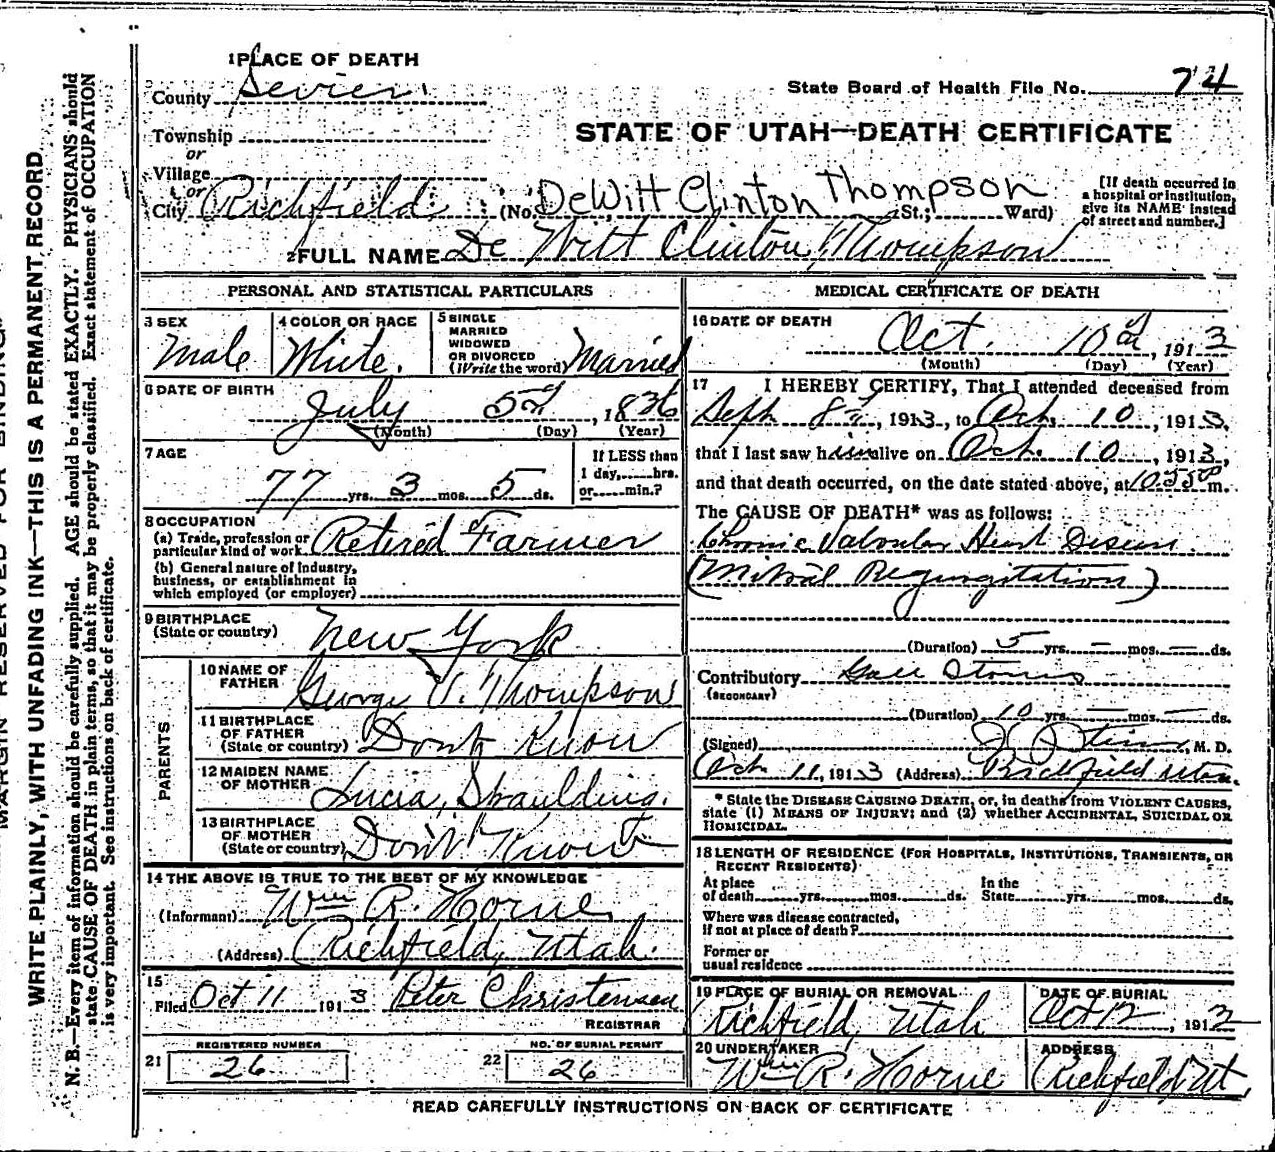 MARGIN RESERVED FOR BINDING
WRITE PLAINLY, WITH UNFADING INK—THIS IS A PERMANENT RECORD
N. B.—Every item of information should be carefully supplied. AGE should be stated EXACTLY. PHYSICIANS should
state CAUSE OF DEATH in plain terms, so that it may be properly classified. Exact statement of OCCUPATION
is very important. See instructions on back of certificate.
1 PLACE OF DEATH
County Sevier
State Board of Health File No. 74
Township
or
STATE OF UTAH—DEATH CERTIFICATE
Village
or
City Richfield (No. DeWitt Clinton Thompson St.; Ward)
[If death occurred in
a hospital or institution,
give its NAME instead
of street and number.]
2 FULL NAME De Witt Clinton Thompson
PERSONAL AND STATISTICAL PARTICULARS
3 SEX
Male
4 COLOR OR RACE
White.
5 SINGLE
MARRIED
WIDOWED
OR DIVORCED
(Write the word) Married
6 DATE OF BIRTH
July 5th, 1836
(Month) (Day) (Year)
7 AGE
77 yrs. 3 mos. 5 ds.
If LESS than
1 day, hrs.
or min.?
8 OCCUPATION
(a) Trade, profession or
particular kind of work Retired Farmer
(b) General nature of industry,
business, or establishment in
which employed (or employer)
9 BIRTHPLACE
(State or country) New York
PARENTS
10 NAME OF
FATHER George V. Thompson
11 BIRTHPLACE
OF FATHER
(State or country) Dont Know
12 MAIDEN NAME
OF MOTHER Lucia, Spaulding.
13 BIRTHPLACE
OF MOTHER
(State or country) Don't Know
14 THE ABOVE IS TRUE TO THE BEST OF MY KNOWLEDGE
(Informant) Wm R. Horne
(Address) Richfield, Utah.
15
Filed Oct 11 1913 Peter Christensen
REGISTRAR
21 REGISTERED NUMBER
26
22 NO. OF BURIAL PERMIT
26
MEDICAL CERTIFICATE OF DEATH
16 DATE OF DEATH
Oct. 10th, 1913
(Month) (Day) (Year)
17 I HEREBY CERTIFY, That I attended deceased from
Sept 8th, 1913, to Oct. 10, 1913,
that I last saw him alive on Oct. 10, 1913,
and that death occurred, on the date stated above, at 10 55 P m.
The CAUSE OF DEATH* was as follows:
Chronic Valvular Heart Disease.
(Mitral Regurgitation)
(Duration) 5 yrs. — mos. — ds.
Contributory Gall Stones
(SECONDARY)
(Duration) 10 yrs. — mos. — ds.
(Signed) , M. D.
Oct 11, 1913 (Address) Richfield Utah.
* State the DISEASE CAUSING DEATH, or, in deaths from VIOLENT CAUSES,
state (1) MEANS OF INJURY; and (2) whether ACCIDENTAL, SUICIDAL OR
HOMICIDAL.
18 LENGTH OF RESIDENCE (FOR HOSPITALS, INSTITUTIONS, TRANSIENTS, OR
RECENT RESIDENTS)
At place In the
of death yrs. mos. ds. State yrs. mos. ds.
Where was disease contracted,
if not at place of death?
Former or
usual residence
19 PLACE OF BURIAL OR REMOVAL
Richfield, Utah
DATE OF BURIAL
Oct 12, 1913
20 UNDERTAKER
Wm R. Horne
ADDRESS
Richfield Ut.
READ CAREFULLY INSTRUCTIONS ON BACK OF CERTIFICATE